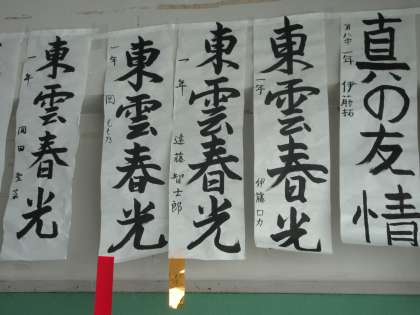 真の友情
一年 伊藤拓
東雲春光
一年 伊藤ロカ
東雲春光
一年 遠藤智士郎
東雲春光
一年 岡
東雲春光
一年 岡田